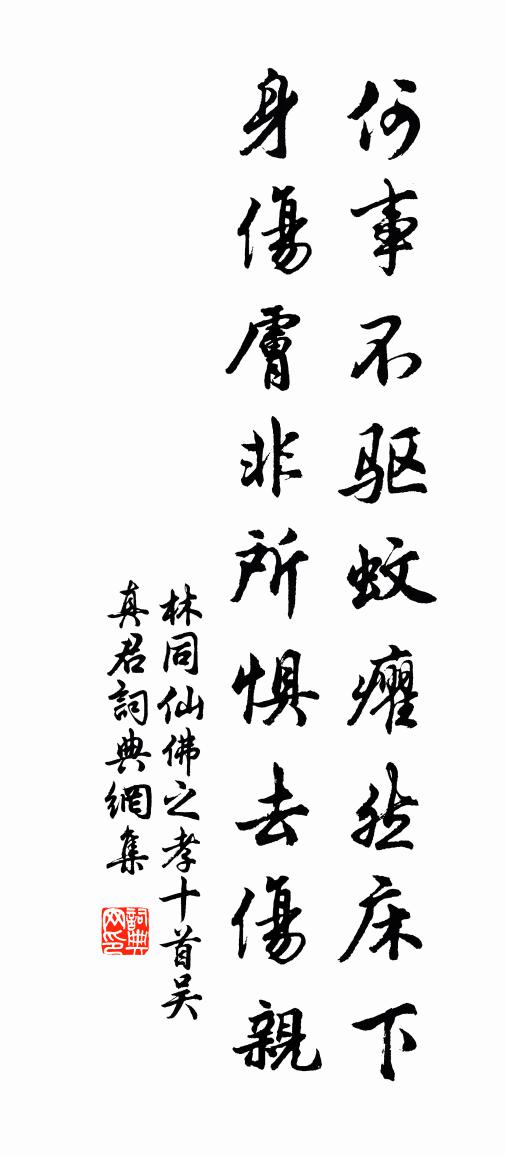 何事不驱蚊癯然床下
身傷膚非所惧去傷親
林同仙佛之孝十首吴
真君詞典網集
詞典网印